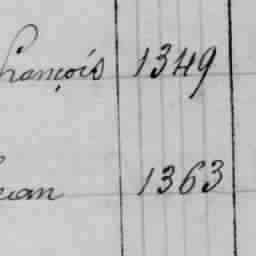 François 1349
Jean 1363